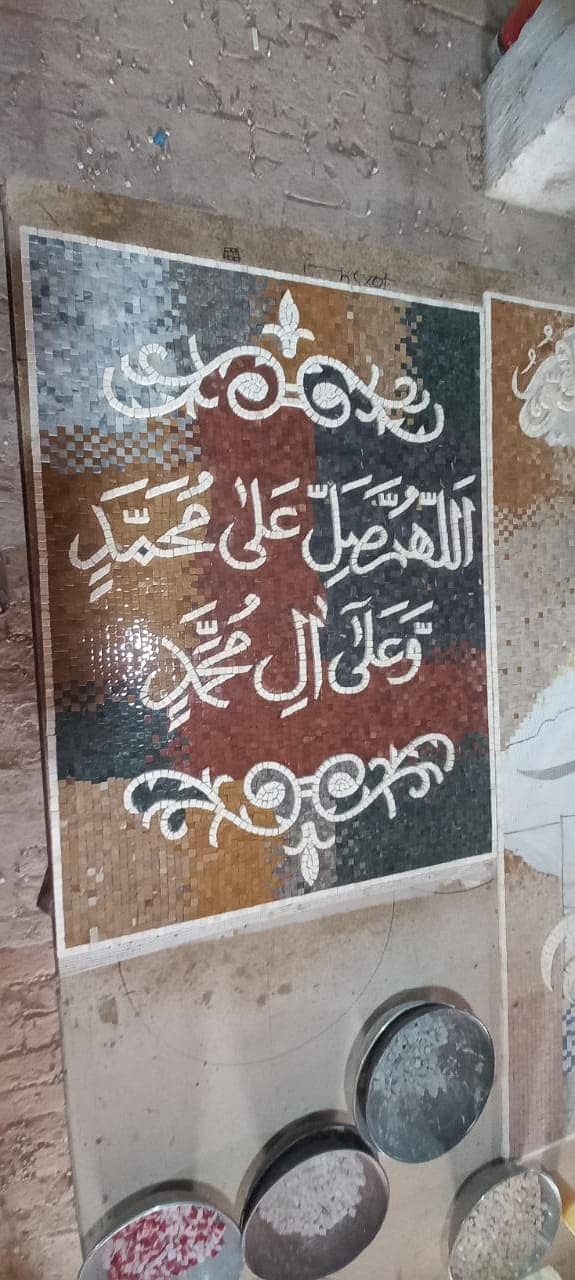 اَللّٰهُمَّ صَلِّ عَلٰى مُحَمَّدٍ
وَّعَلٰٓى اٰلِ مُحَمَّدٍ